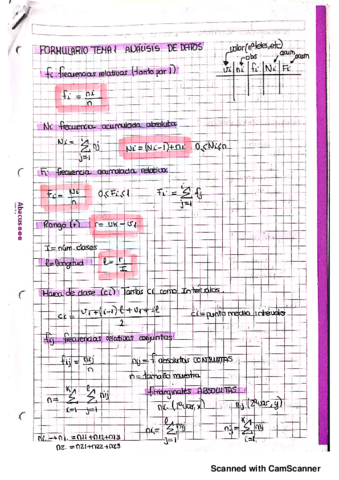 FORMULARIO TEMA 1 ANÁLISIS DE DATOS
valor (nº teles, etc)
obs acum acum
vi ni fi Ni Fi
fi frecuencias relativas (tanto por 1)
fi = ni/n
Ni frecuencia acumulada absoluta
Ni = Σ j=1 i nj Ni = (Ni-1) + ni 0 ≤ Ni ≤ n
Fi frecuencia acumulada relativa
Fi = Ni/n 0 ≤ Fi ≤ 1 Fi = Σ j=1 i fj
Rango (r) r = vk - v1
I = núm. clases
l = longitud l = r/I
Marca de clase (ci) Tantas ci como Intervalos.
ci = v1 + (i-1) l + v1 + il / 2 ci = punto medio intervalo
fij frecuencias relativas conjuntas
fij = nij/n nij = f absolutas CONJUNTAS
n = tamaño muestra
n = Σ i=1 k Σ j=1 l nij f marginales ABSOLUTAS
ni. (1ª var, x) n.j (2ª var, y)
ni. = Σ j=1 l nij n.j = Σ i=1 k nij
n2. = n21 + n22 + n23
Abacus
Scanned with CamScanner